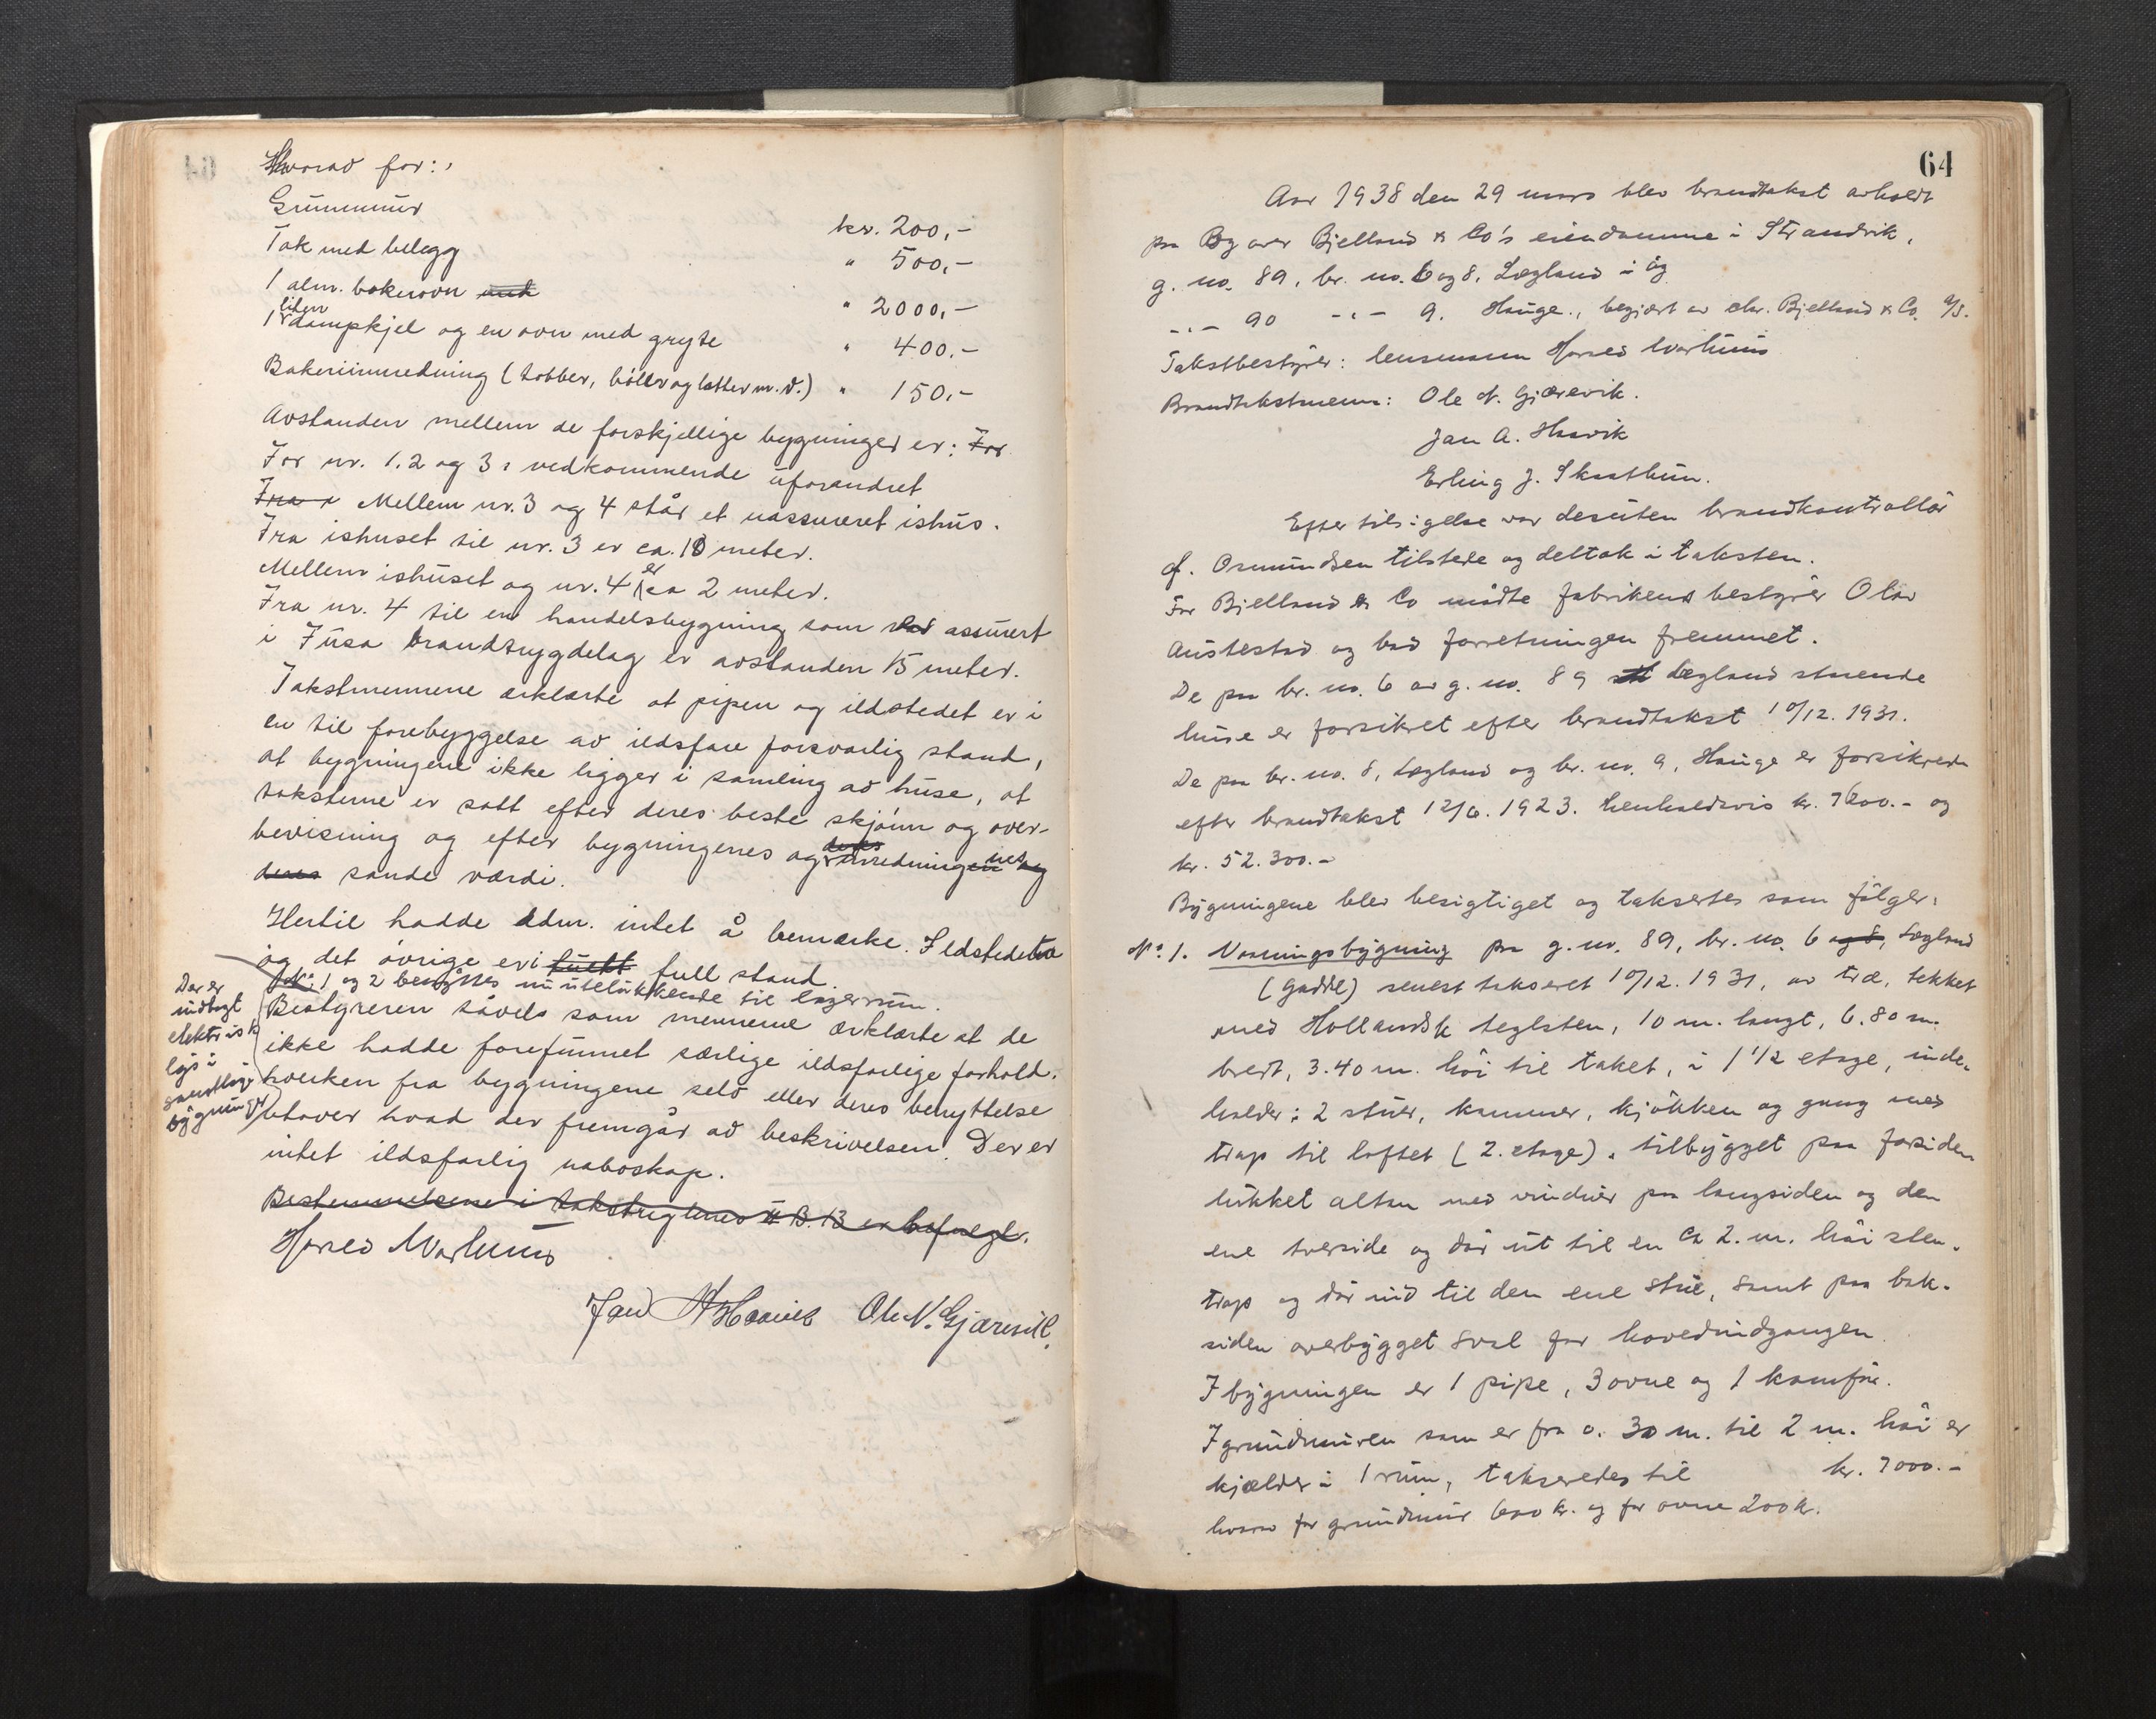 Hvorav for:
Grunnmur kr. 200,-
Tak med belegg " 500,-
1 alm. bakerovn med " 2000,-
1 liten dampkjel og en ovn med gryte " 400.-
Bakeriinnredning (tobber, hóller og latter m.v.) " 150,-
Avstanden mellem de forskjellige bygninger er: For
For nr. 1.2 og 3 s vedkommende uforandret
Fra i Mellem nr. 3 og 4 står et uassureret ishus.
Fra ishuset til nr. 3 er ca. 10 meter.
Mellem ishuset og nr. 4 er ca 2 meter.
Fra nr. 4 til en handelsbygning som er assurert
i Fusa brandtrygdelag er avstanden 15 meter.
Takstmennene erklærte at pipen og ildstedet er i
en til forebyggelse av ildsfare forsvarlig stand,
at bygningene ikke ligger i samling av huse, at
taksterne er satt efter deres beste skjónn og over-
bevisning og efter bygningenes og deres innredningenes og
deres sande værdi.
Hertil hadde adm. intet å bemærke. Ildstedet
og det óvrige er i fuldt full stand.
No. 1 og 2 benyttes nu utelukkende til lagerrum.
Der er
indlagt
elektrisk
lys i
samtlige
bygninger
Bestyreren såvel som mennene erklærte at de
ikke hadde forefunnet særlige ildsfarlige forhold,
hverken fra bygningene selv eller deres benyttelse
utover hvad der fremgår av beskrivelsen. Der er
intet ildsfarlig naboskap.
Bestemmelsene i takstreglenes II B. 13 er befulgt.
Hans Markhus
Jan A Haavik Ole N. Gjærevik.
64
Aar 1938 den 29 mars blev brandtakst avholdt
paa Chr Bjelland & Co's eiendomme i Strandvik,
g. no. 89, br. no. 6 og 8, Lægland i og
-"- 90 -"- 9. Hauge., begjært av Chr. Bjelland & Co. A/S.
Takstbestyrer: lensmann
Brandtakstmenn: Ole N. Gjærevik.
Jan A. Haavik
Erling J. Skaathun.
Efter tilsigelse var desuten brandkontrollör
N. Osmundsen tilstede og deltok i taksten.
For Bjelland & Co mødte fabrikens bestyrer Olav
Austestad og bad forretningen fremmet.
De paa br. no. 6 av g. no. 89 Lægland staaende
huse er forsikret efter brandtakst 10/12. 1931.
De paa br. no. 8, Lægland og br. no. 9, Hauge er forsikrede
efter brandtakst 12/6. 1923. henholdsvis kr. 7600.- og
kr. 52.300.-
Bygningene blev besigtiget og taksertes som følger:
No. 1. Vaaningsbygning paa g. no. 89, br. no. 6 og 8, Lægland
(Gadde) senest taksert 10/12. 1931, av træ, tekket
med Hollandsk teglsten, 10 m. langt, 6.80 m.
bredt, 3.40 m. höi til taket, i 1 1/2 etage, inde-
holder: 2 stuer, kammer, kjökken og gang med
trap til loftet (2. etage). tilbygget paa forsiden
lukket altan med vinduer paa langsiden og den
ene tverside og dör ut til en ca 2. m. höi sten-
trap og dör ind til den ene stue, samt paa bak-
siden overbygget sval for hovedindgangen.
I bygningen er 1 pipe, 3 ovne og 1 komfür.
I grundmuren som er fra 0.30 m. til 2 m. höi er
kjælder i 1 rum, takseredes til kr. 7000.-
hvorav for grundmur 600 kr. og for ovne 200 kr.